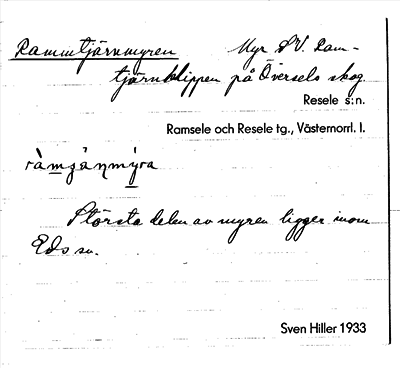 Ramntjärnmyren Myr SV. Ram-
tjärnklippen på Översels skog.
Resele s:n.
Ramsele och Resele tg., Västernorrl. l.
Största delen av myren ligger inom
Eds sn.
Sven Hiller 1933